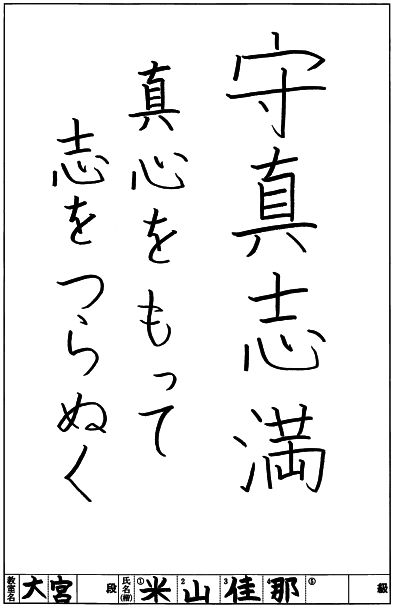 守真志満
真心をもって
志をつらぬく
教室名 大宮 段 氏名(号) ①米 2山 3佳 那 ⑤ 級